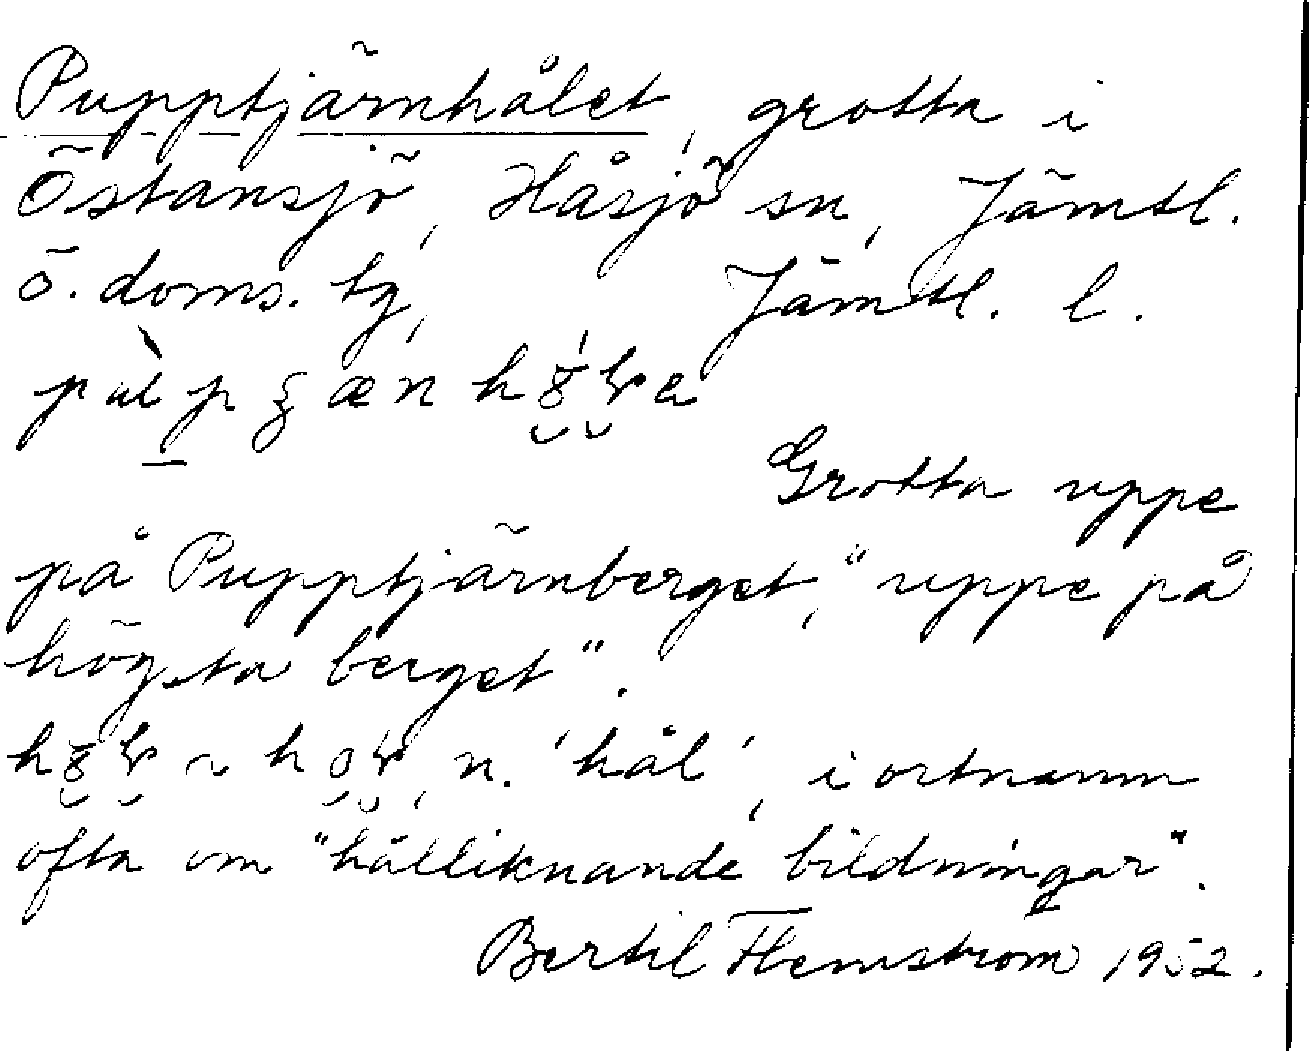 Pupptjärnhålet, grotta i
Östansjö, Håsjö sn, Jämtl.
ö. doms. tg, Jämtl. l.
Grotta uppe
på Pupptjärnberget, "uppe på
högsta berget".
n. 'hål', i ortnamn
ofta om "hålliknande bildningar".
Bertil Flemström 1952.